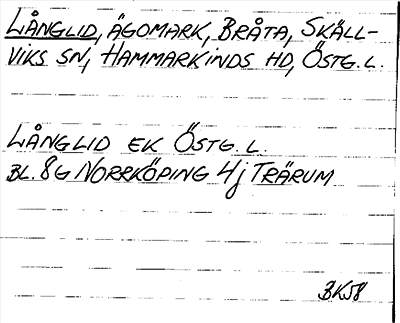 LÅNGLID, ÄGOMARK, BRÅTA, SKÄLL-
VIKS SN, HAMMARKINDS HD, ÖSTG.L.
LÅNGLID EK ÖSTG.L.
BL. 8G NORRKÖPING 4j TRÄRUM
BK58